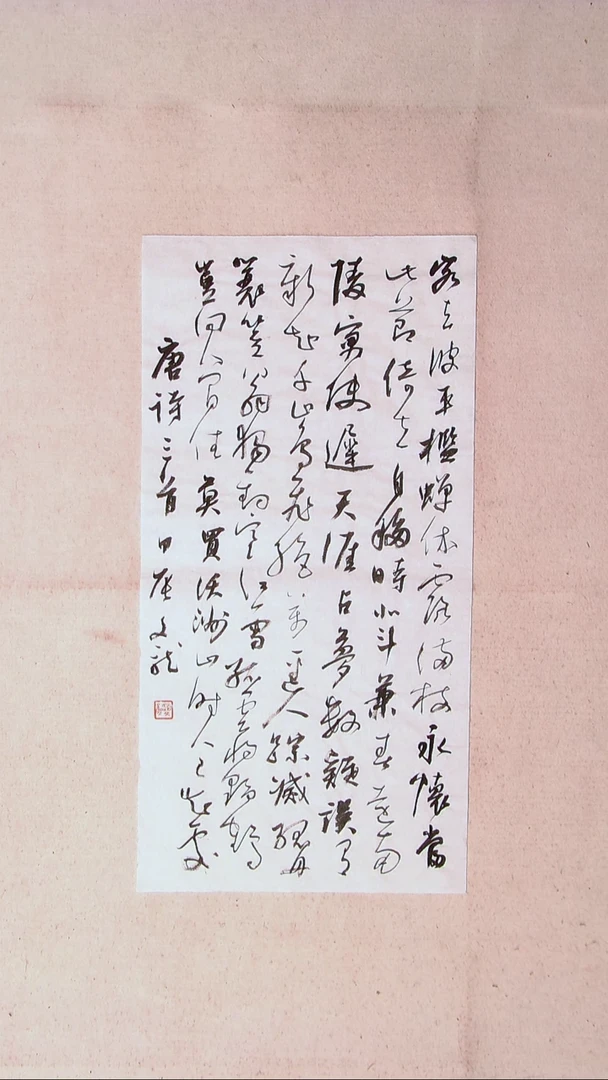 客去波平檻蟬休露滿枝永懷當
此節倚立自移時北斗兼春遠南
陵寓使遲天涯占夢數疑誤有
新知千山鳥飛絕萬徑人蹤滅孤舟
蓑笠翁獨釣寒江雪孤雲將野鶴
豈向人間住莫買沃洲山時人已知處
唐詩三首甲辰文龍